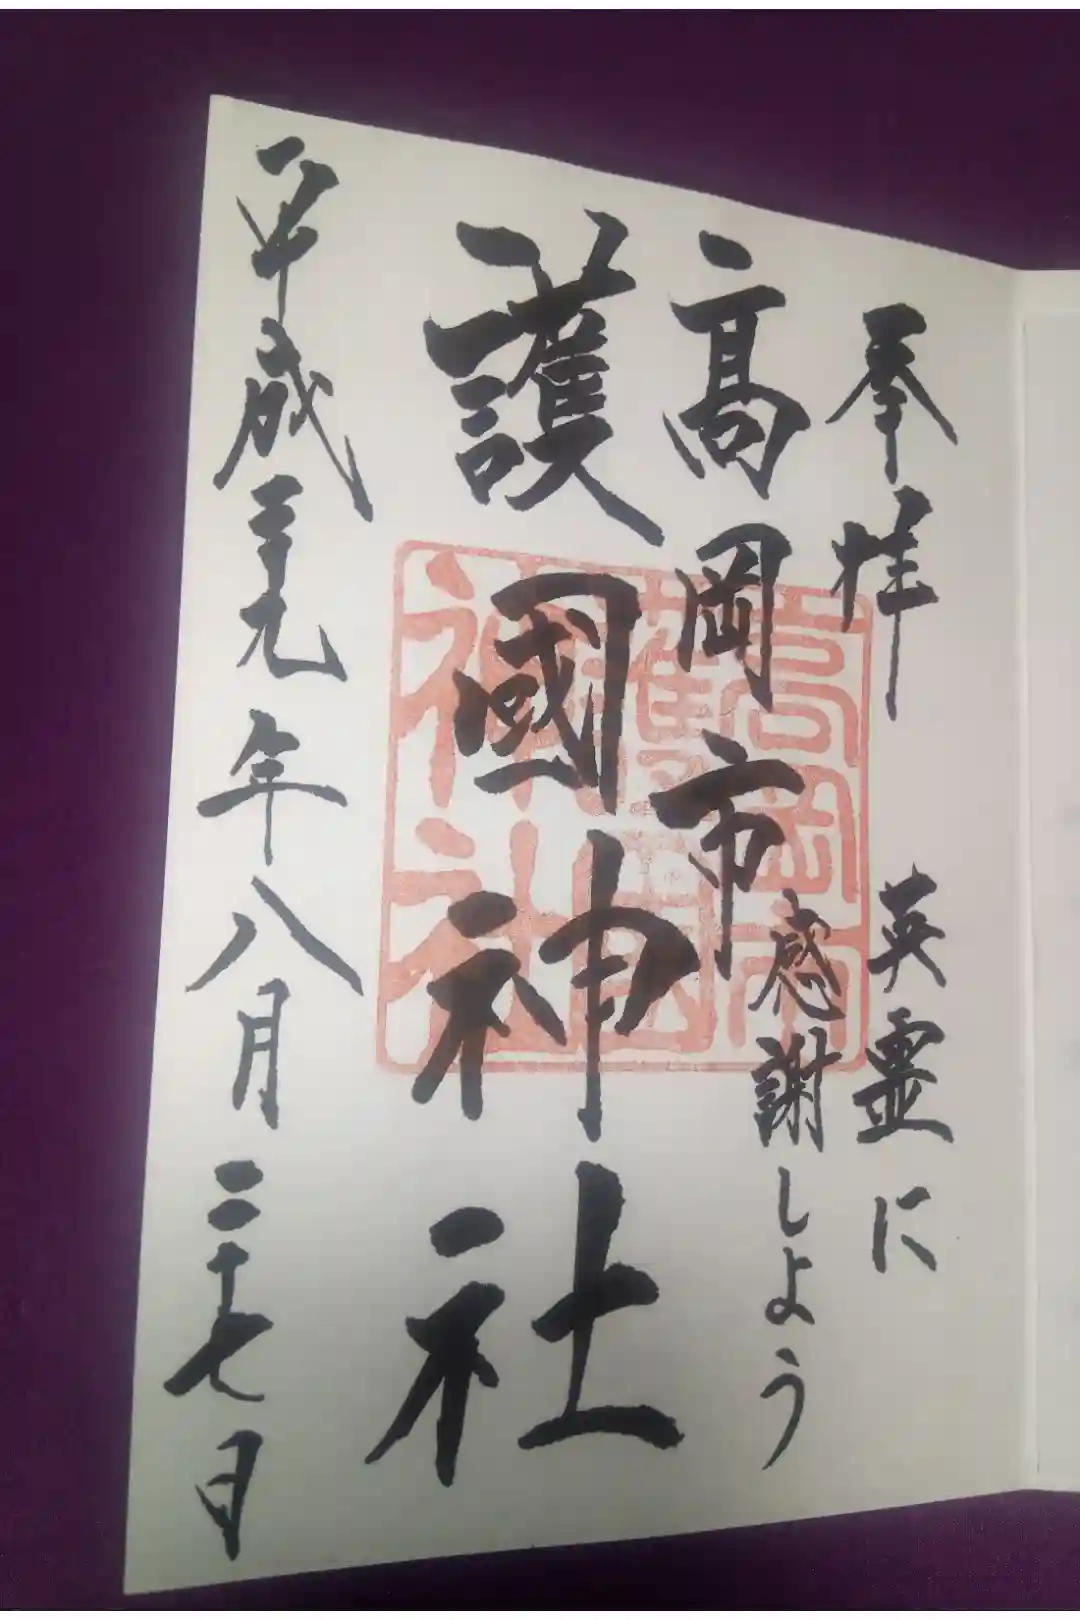 奉拝
英霊に
感謝しよう
高岡市
護國神社
平成二十九年八月二十七日
高岡市
護国
神社